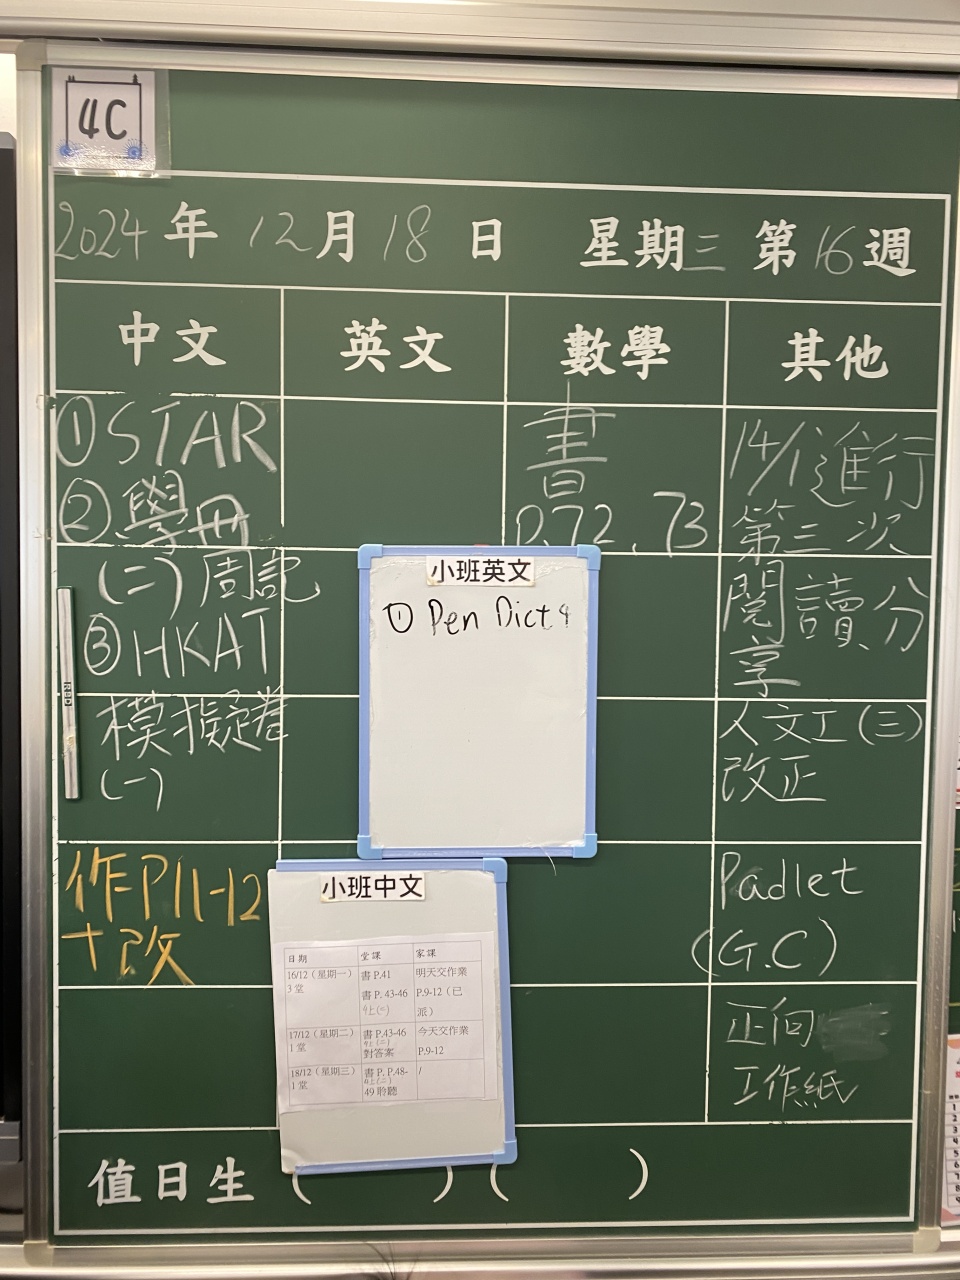 4C
2024 年 12 月 18 日 星期三 第 16 週
中文 英文 數學 其他
①STAR
②學冊
(二)周記
③HKAT
模擬卷
(一)
作P11-12
+改
書
P.72、73
14/1進行
第三次
閱讀分
享
人文工(三)
改正
Padlet
(G.C)
正向
工作紙
小班英文
① Pen Dict. 4
小班中文
日期 堂課 家課
16/12（星期一）
3 堂
書 P.41
書 P. 43-46
4上(二)
明天交作業
P.9-12（已
派）
17/12（星期二）
1 堂
書 P.43-46
4上(二)
對答案
今天交作業
P.9-12
18/12（星期三）
1 堂
書 P. P.48-
4上(二)
49 聆聽
/
值日生 ( ) ( )